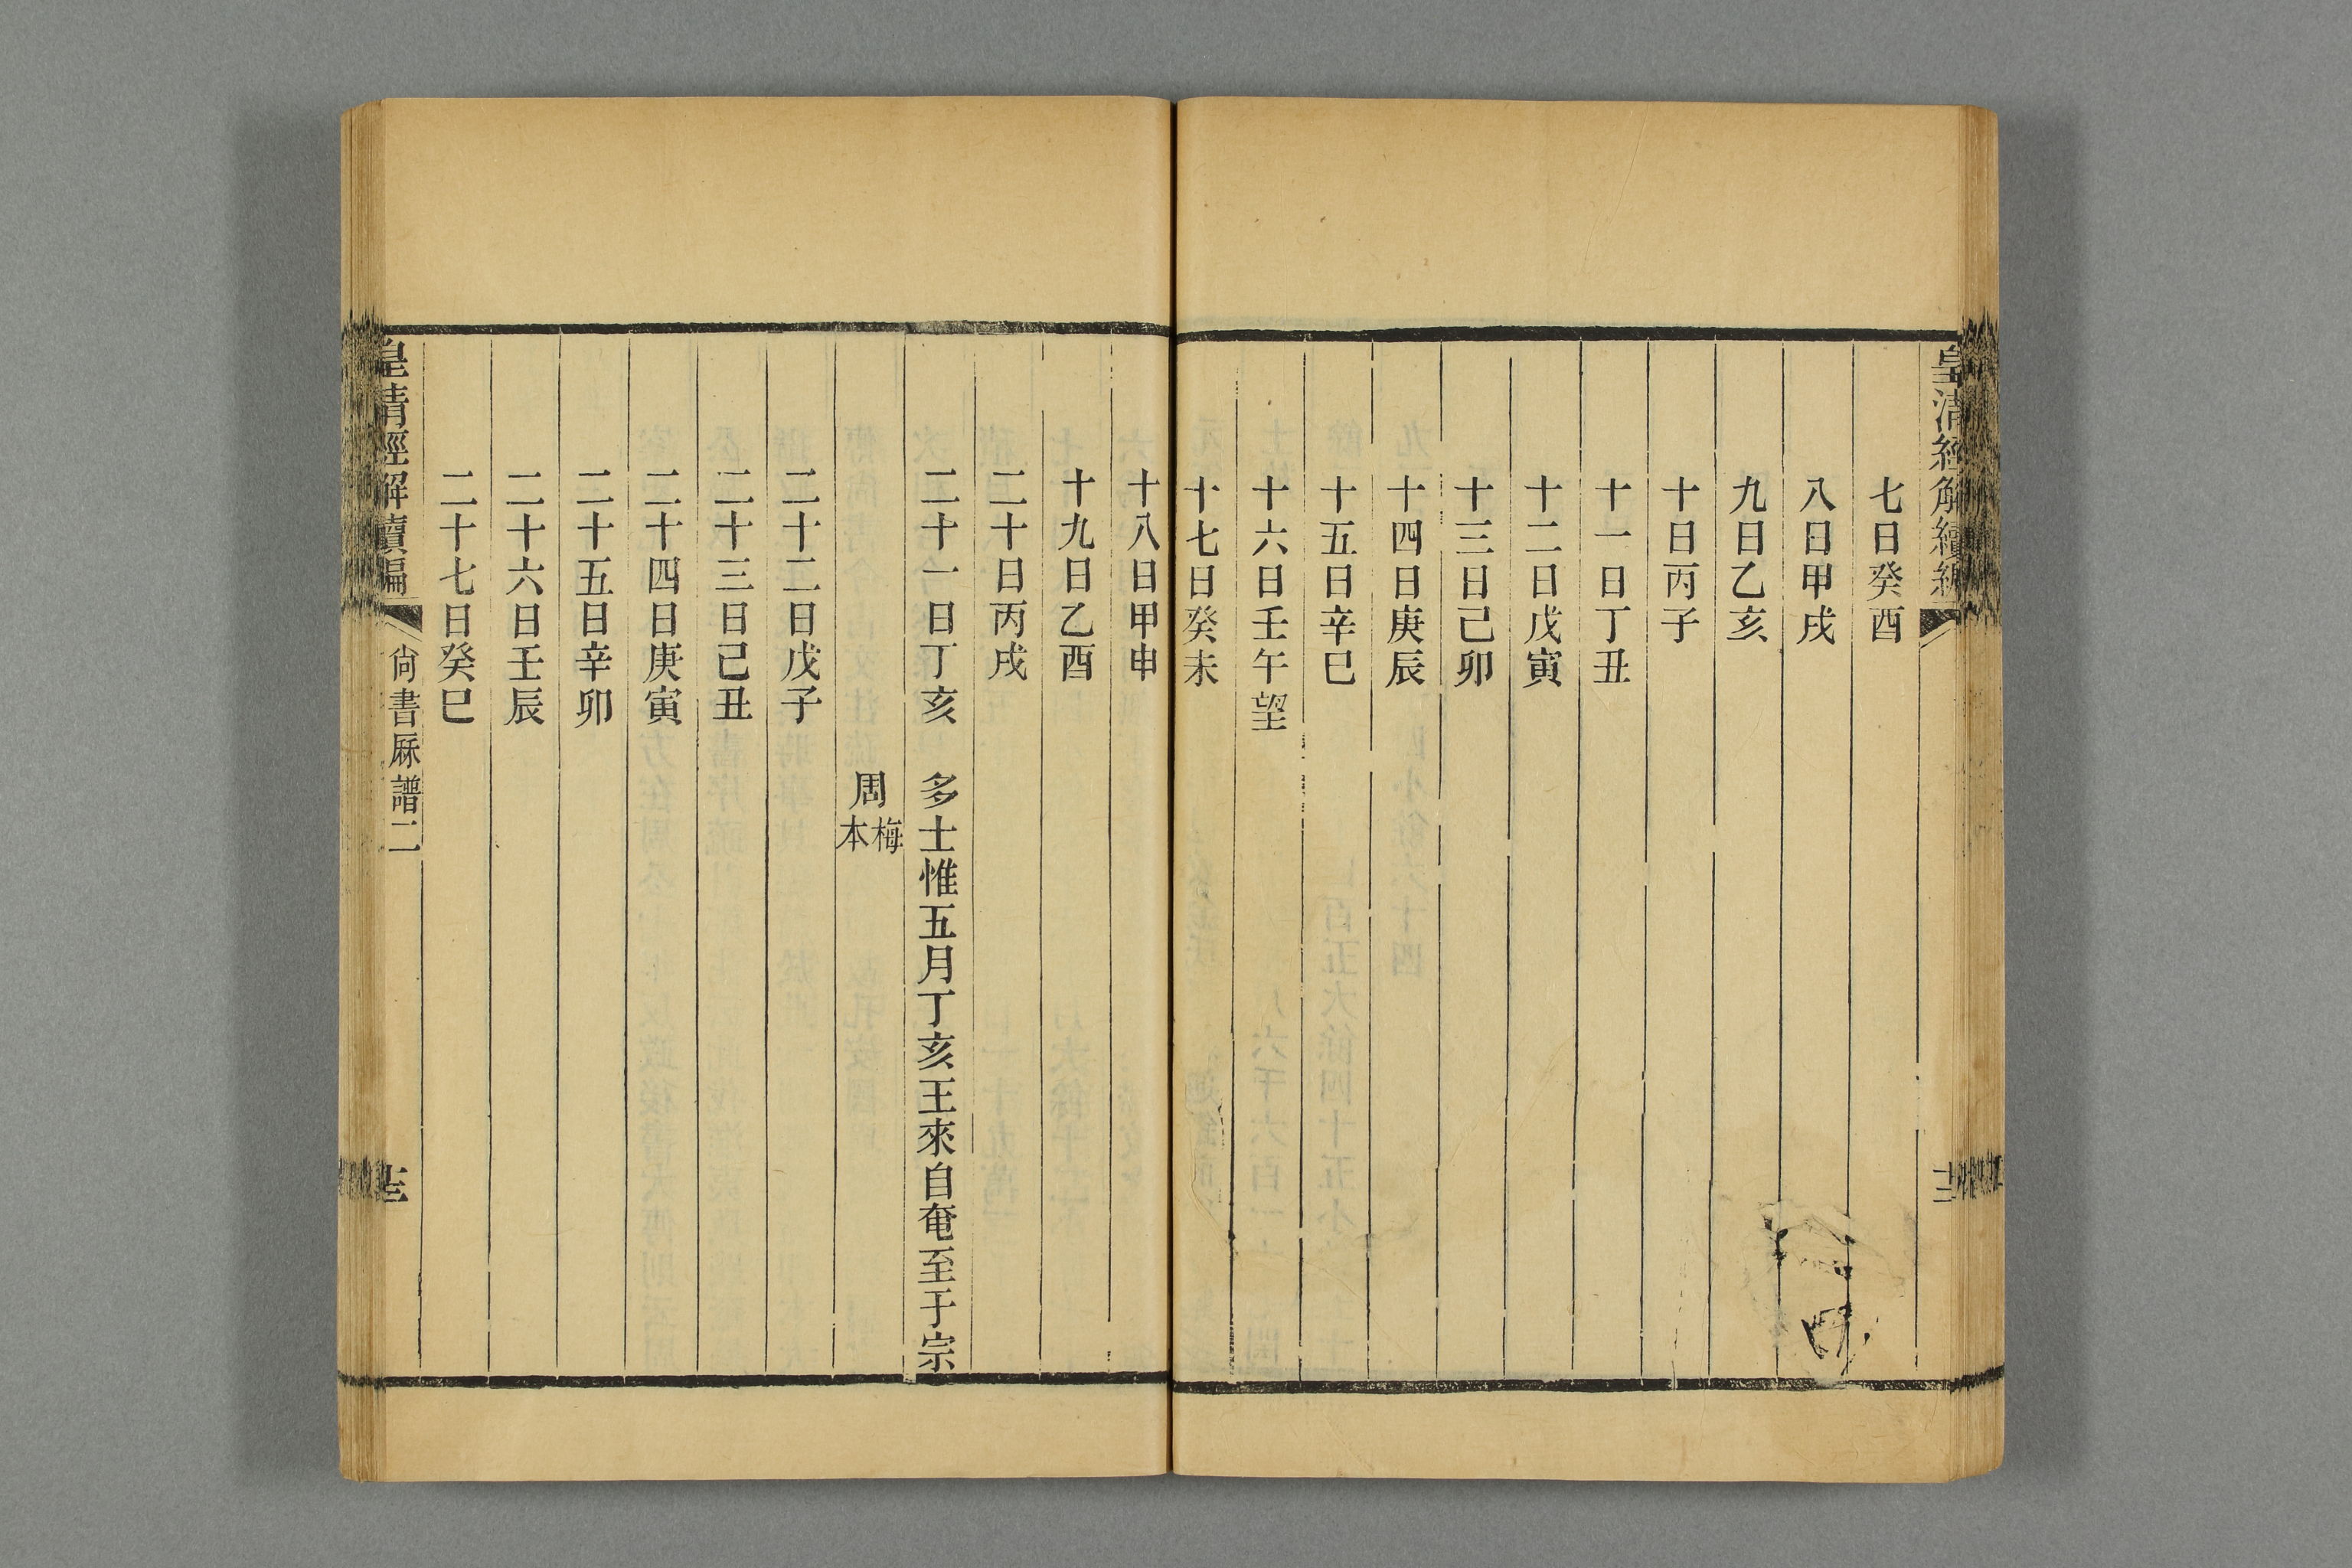 皇清經解續編
十二
七日癸酉
八日甲戌
九日乙亥
十日丙子
十一日丁丑
十二日戊寅
十三日己卯
十四日庚辰
十五日辛巳
十六日壬午望
十七日癸未
十八日甲申
十九日乙酉
二十日丙戌
二十一日丁亥　多士惟五月丁亥王來自奄至于宗
周梅本
二十二日戊子
二十三日己丑
二十四日庚寅
二十五日辛卯
二十六日壬辰
二十七日癸巳
皇清經解續編　尚書厤譜二　十三